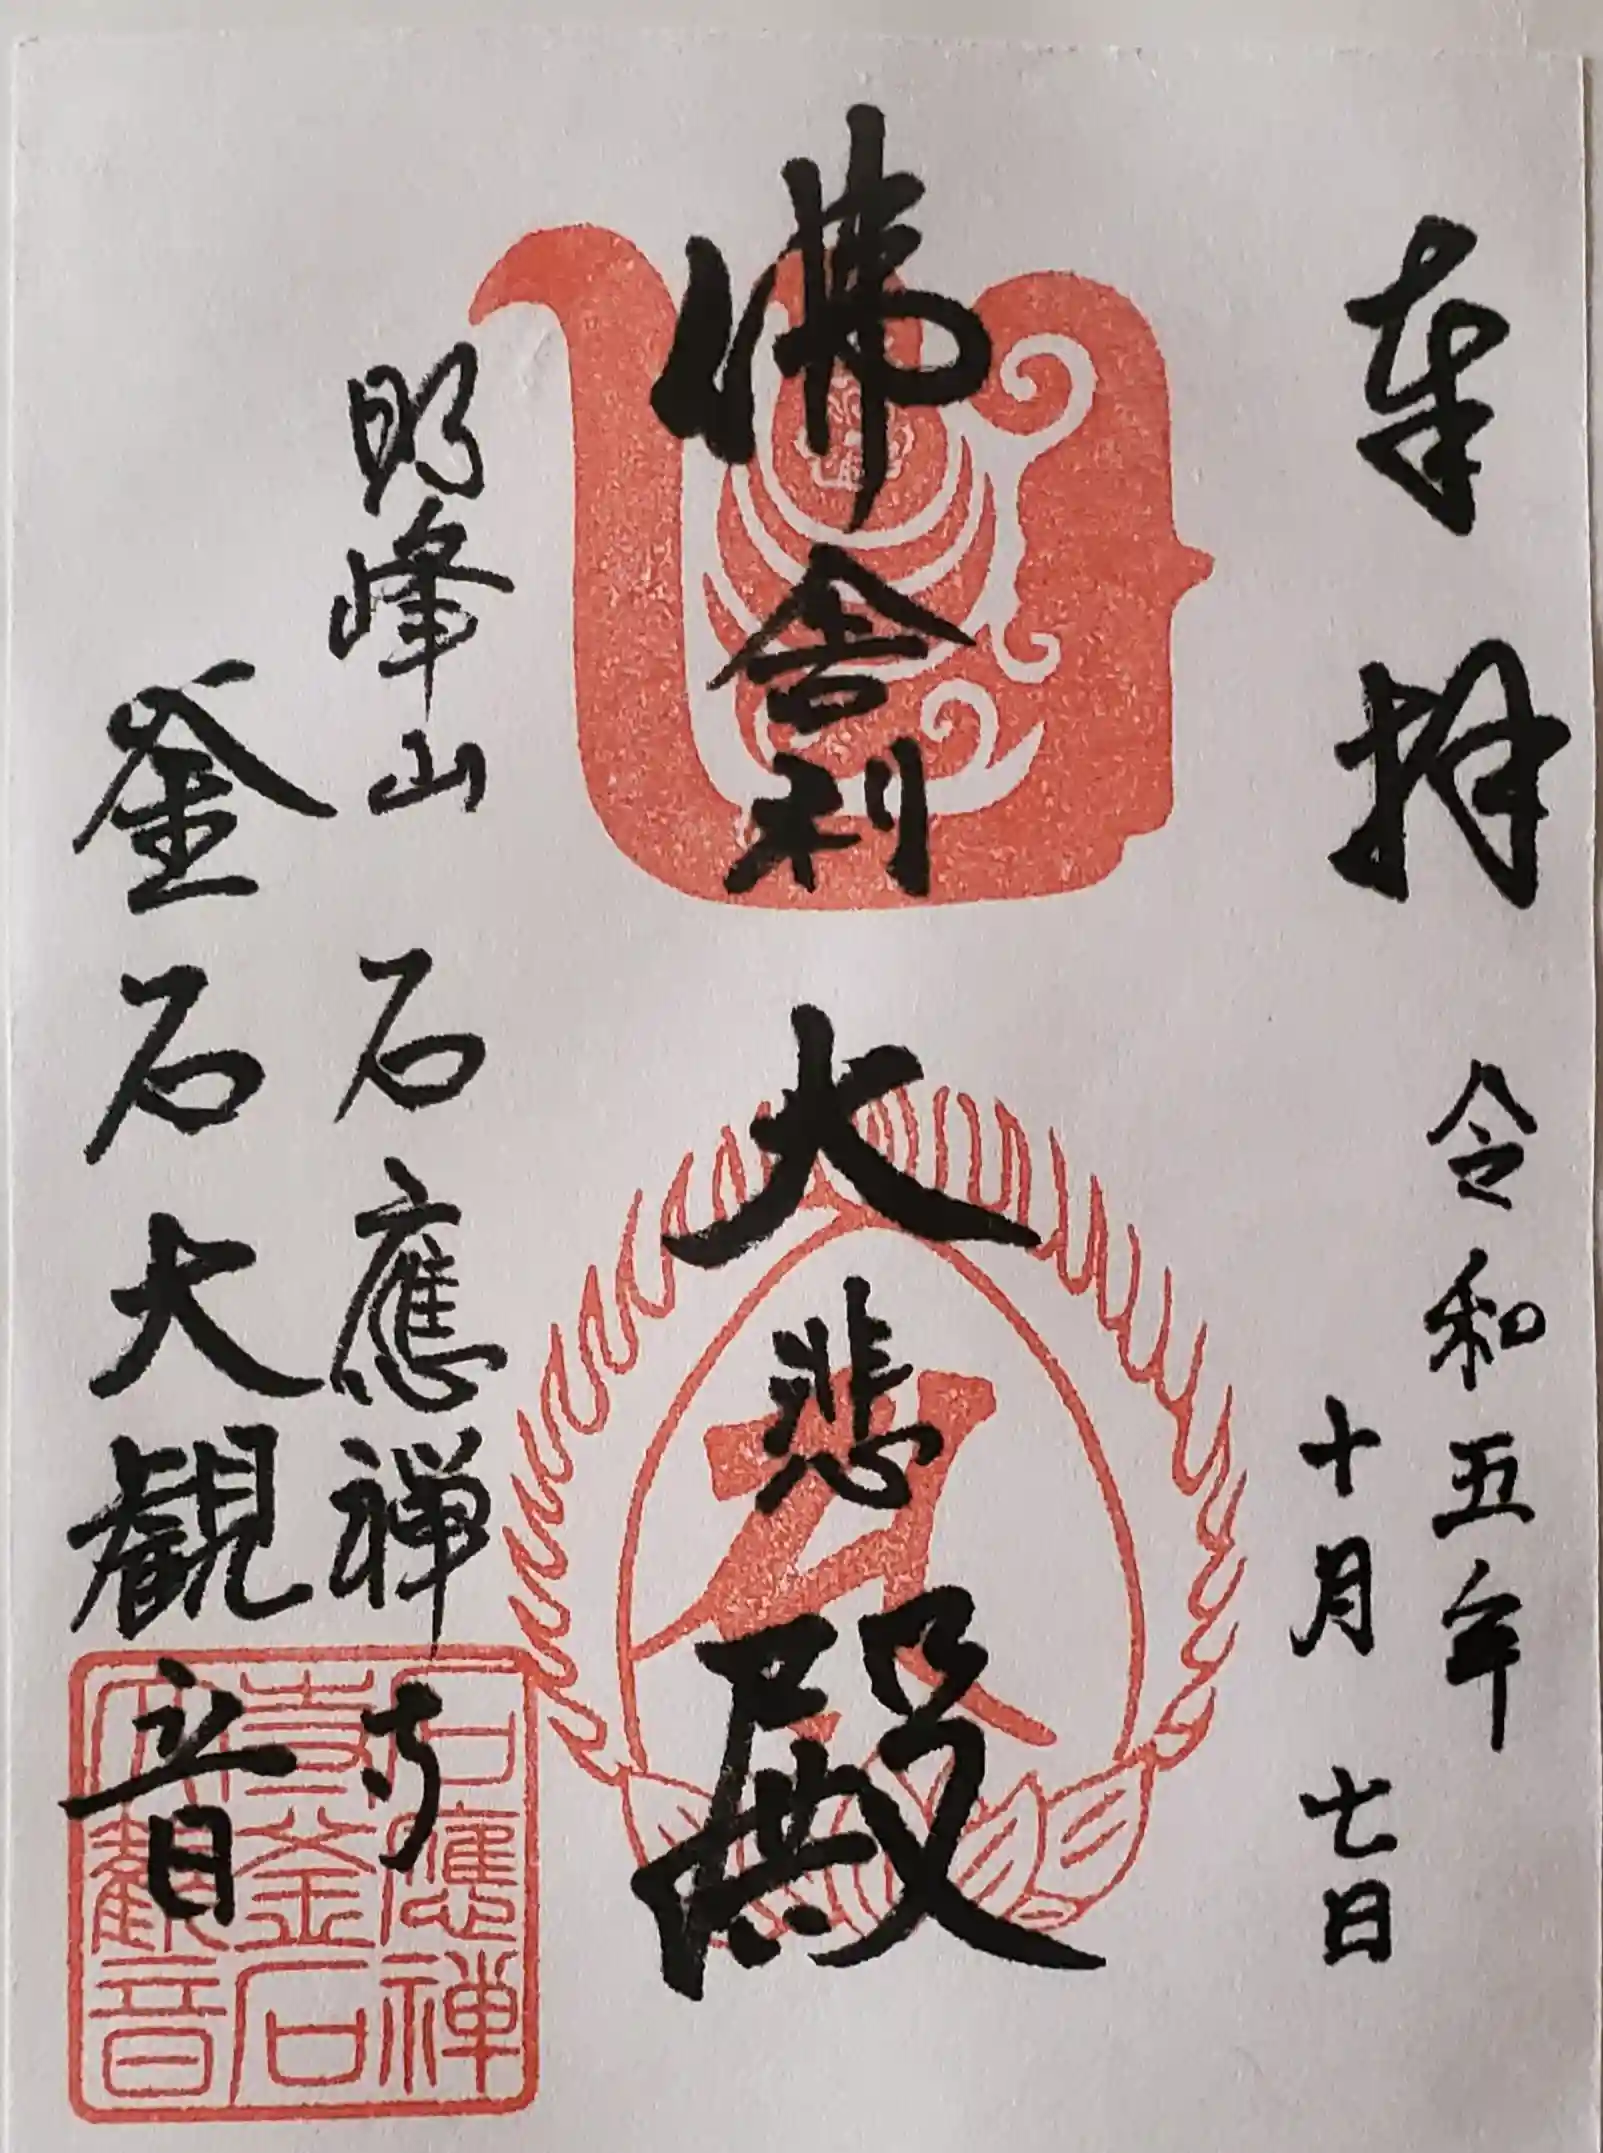 奉拝
令和五年
十月七日
佛舎利
大悲殿
明峰山石應禅寺
釜石大観音
石應禅
寺釜石
大觀音